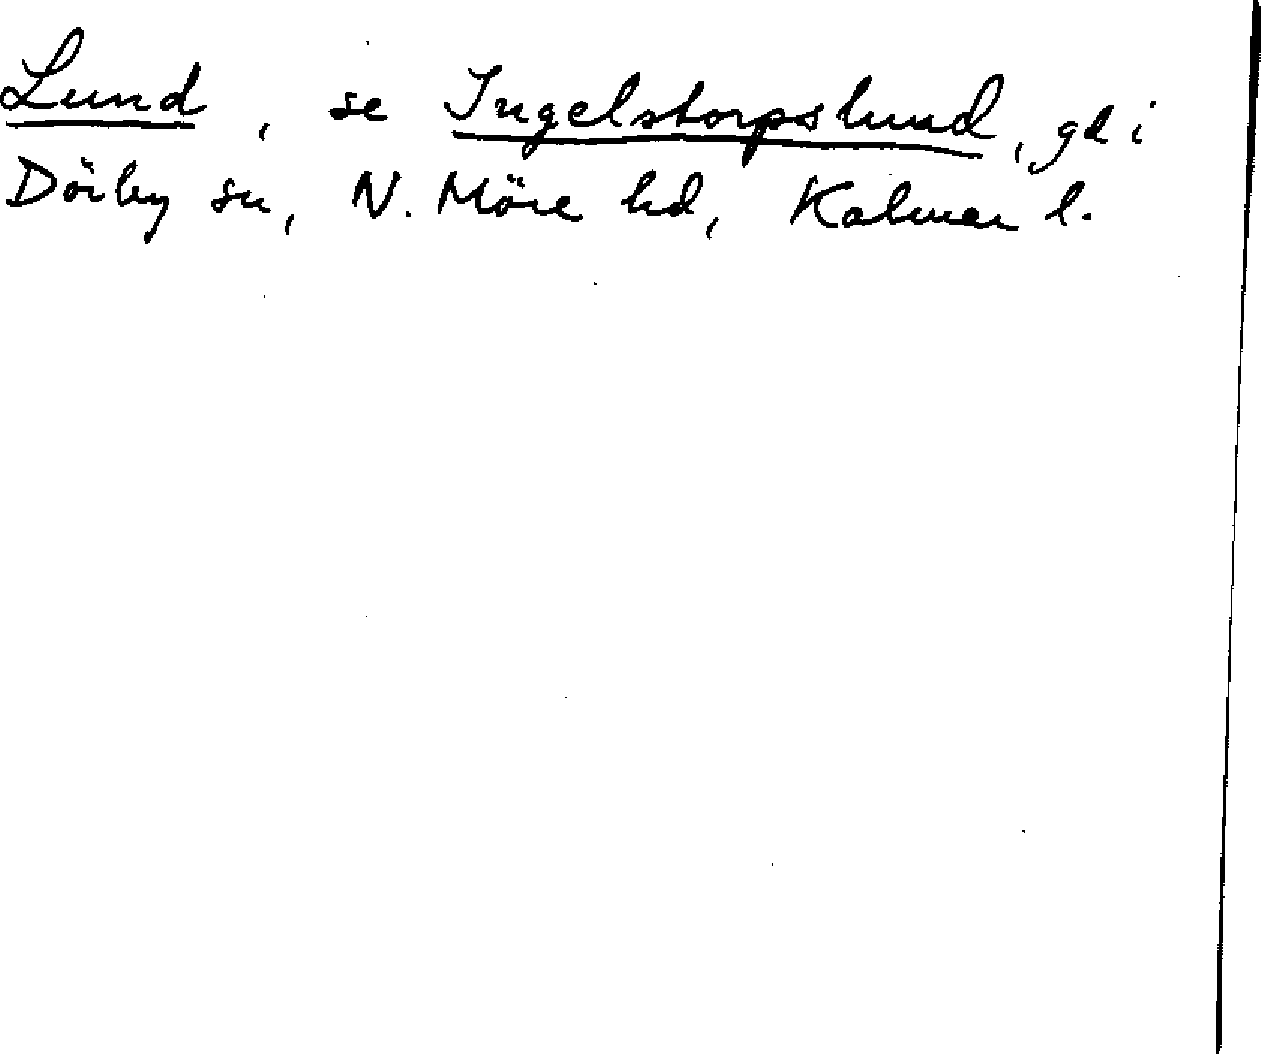 Lund, se Ingelstorpslund, gd i
Dörby sn, N. Möre hd, Kalmar l.